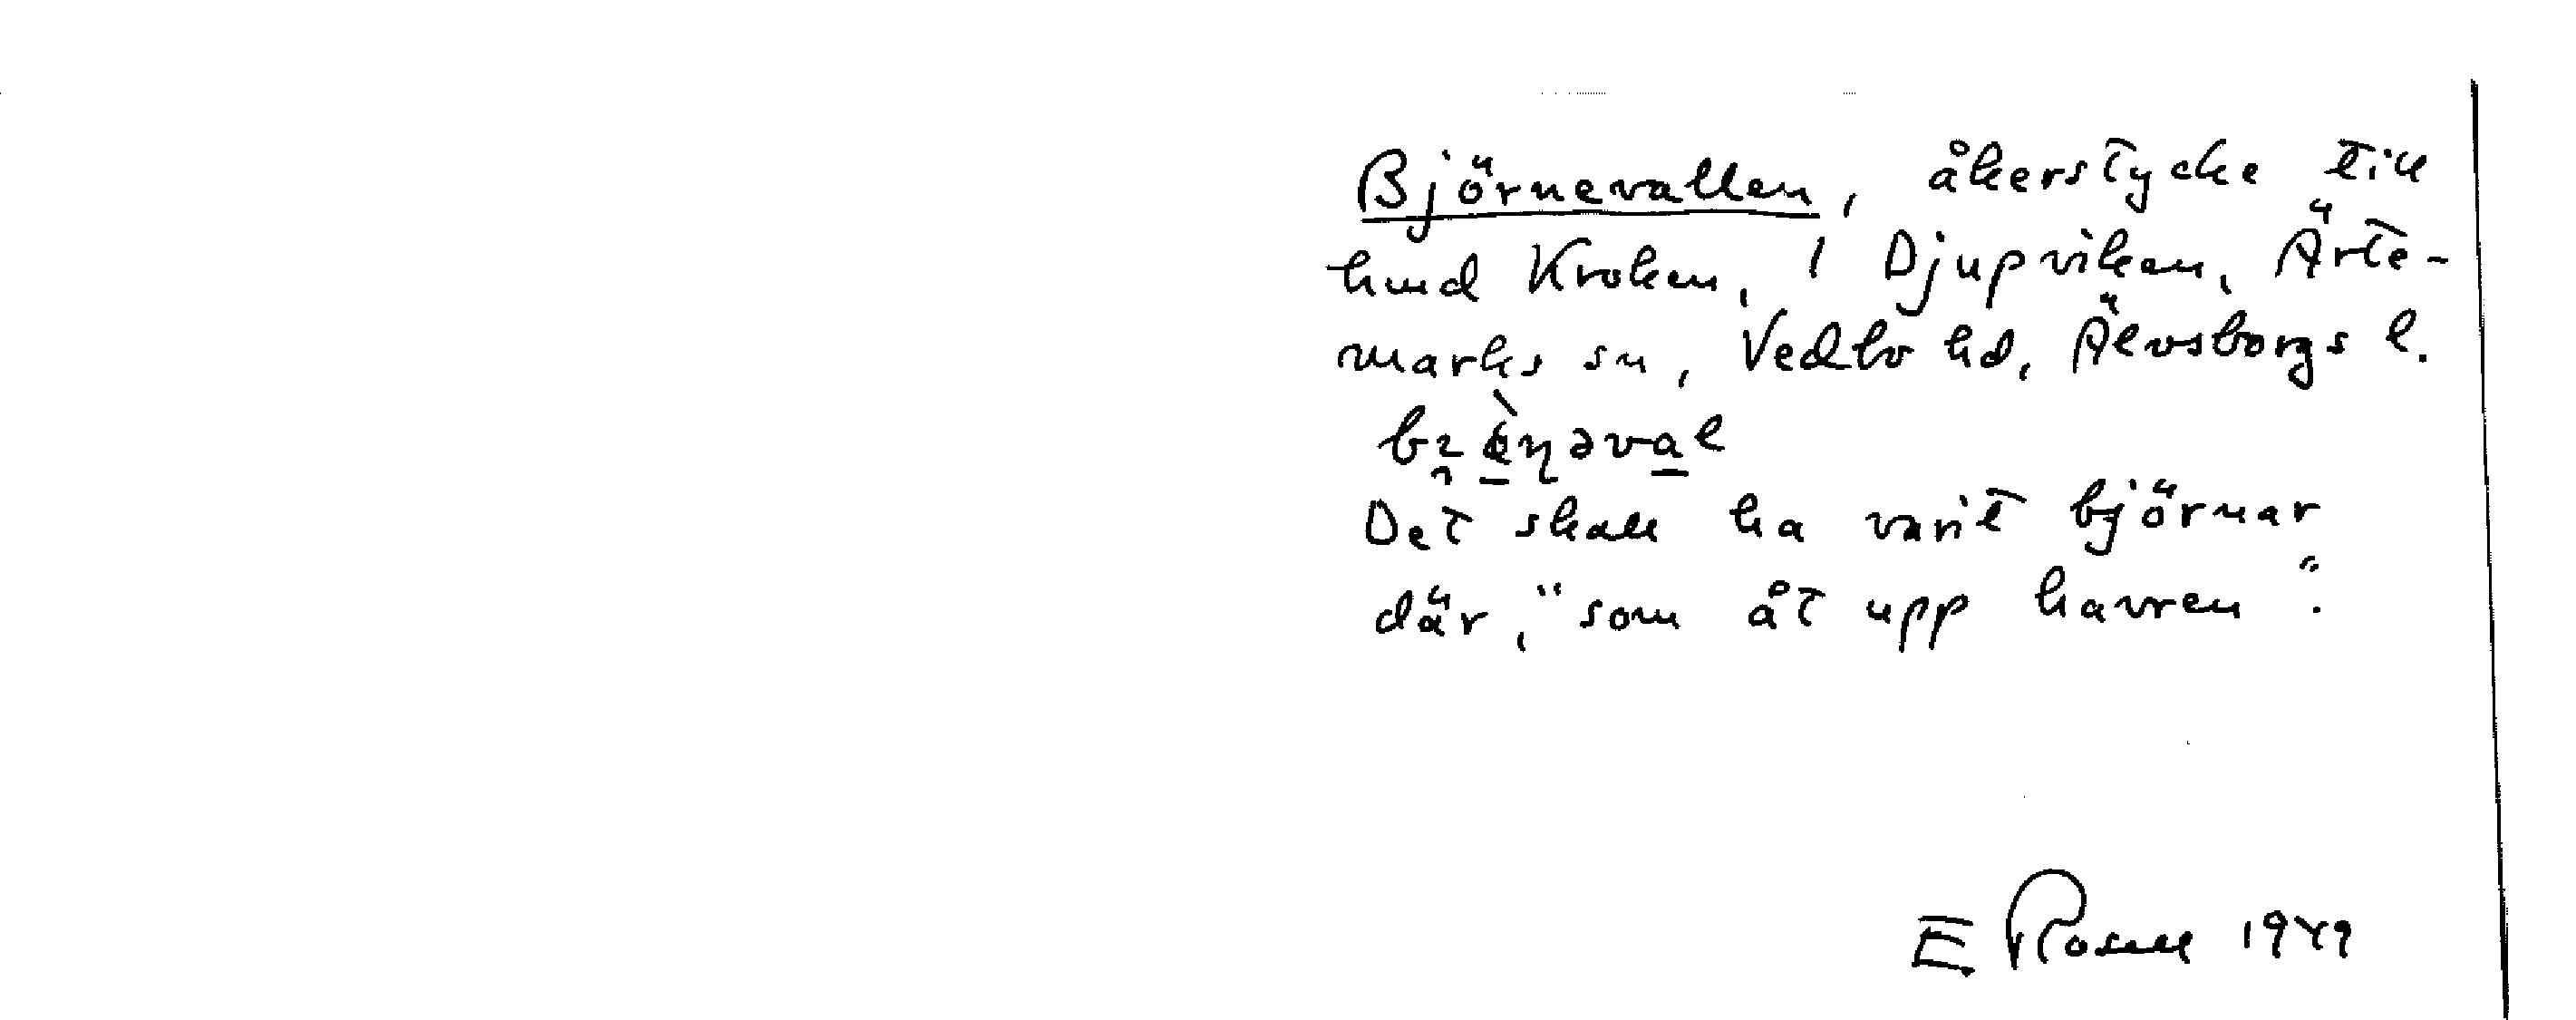 Björnevallen, åkerstycke till
hmd Kroken, 1 Djupviken, Ärte-
marks sn, Vedbo hd, Älvsborgs l.
Det skall ha varit björnar
där, "som åt upp havren".
E Rosell 1949